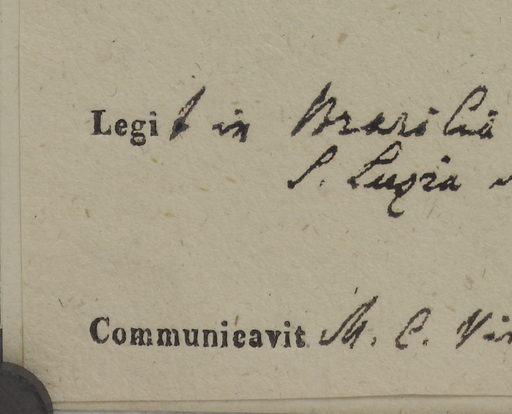 Legit in Brasilia
S. Luzia
Communicavit M. C.